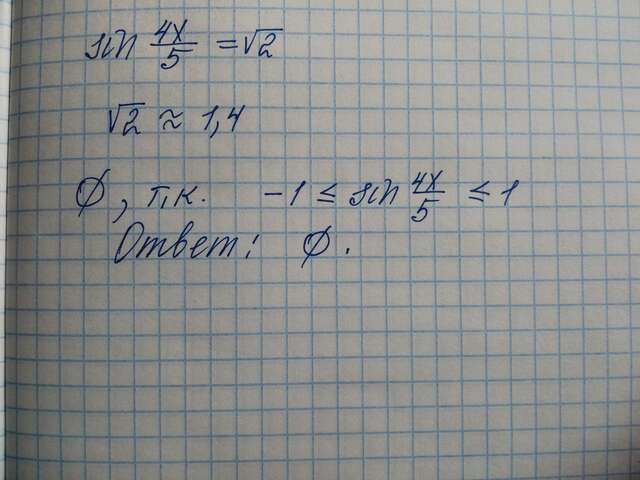 sin 4x/5 = √2
√2 ≈ 1,4
Ø, т.к. -1 ≤ sin 4x/5 ≤ 1
Ответ: Ø.